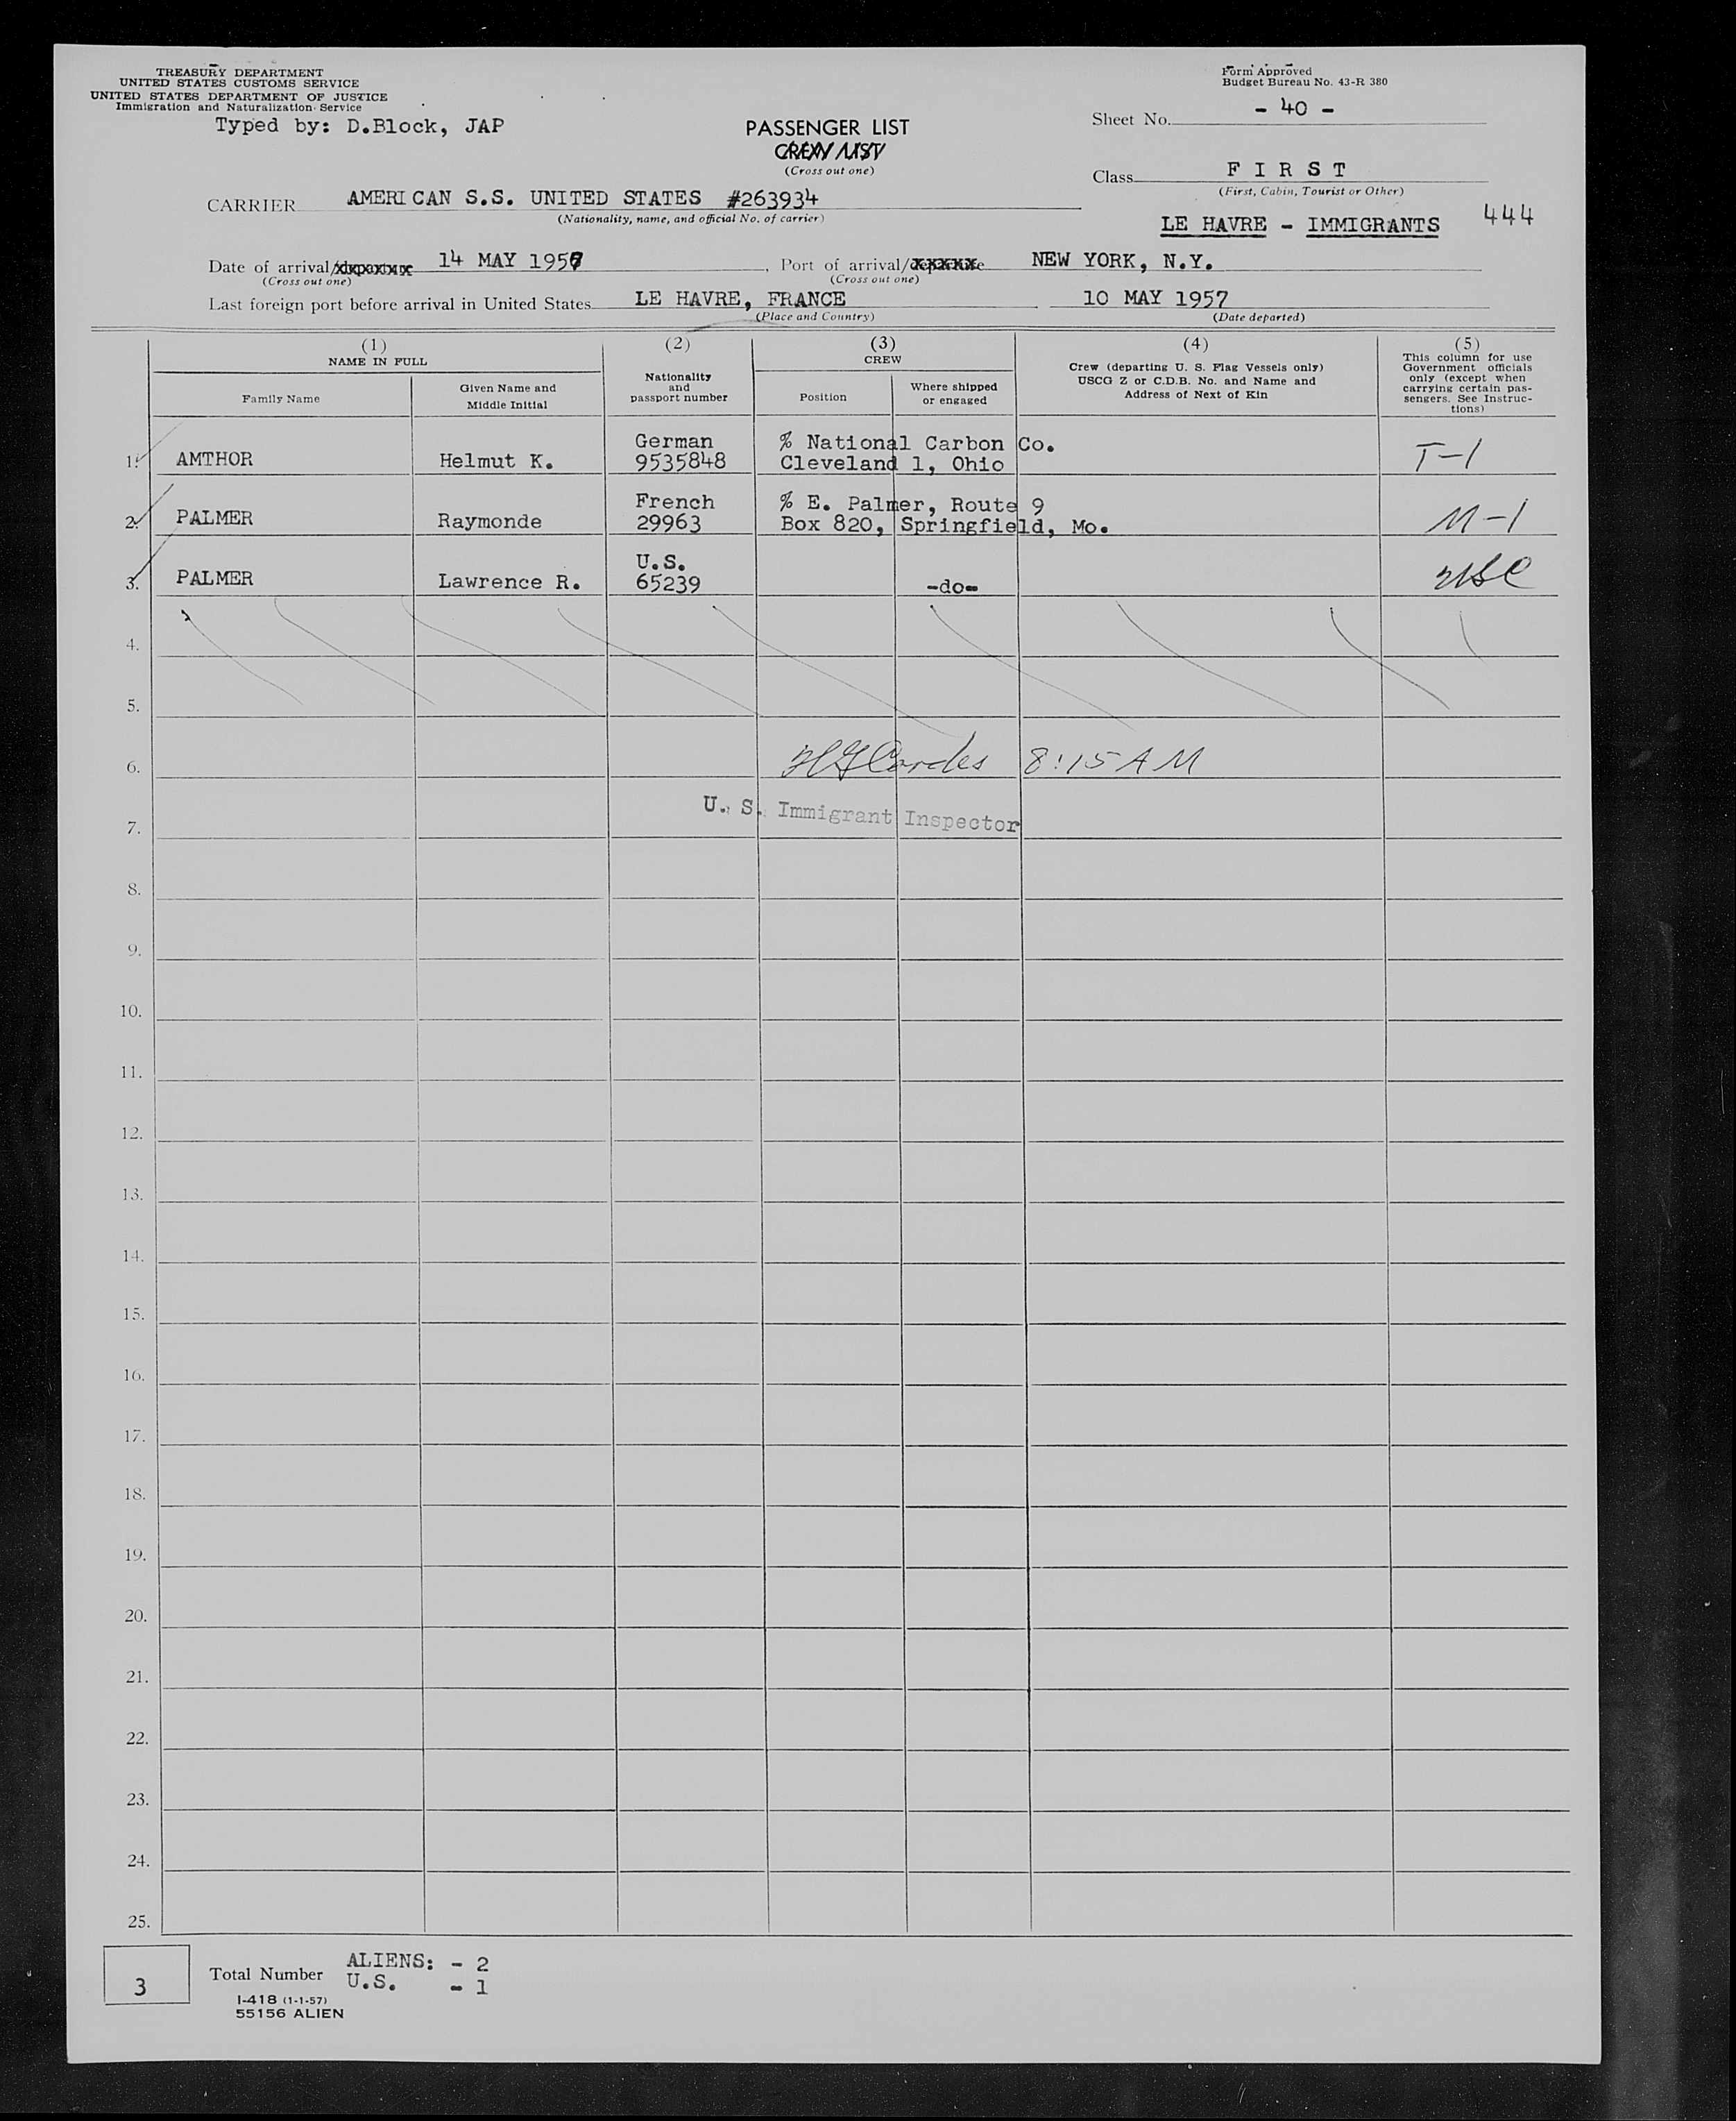 TREASURY DEPARTMENT
UNITED STATES CUSTOMS SERVICE
UNITED STATES DEPARTMENT OF JUSTICE
Immigration and Naturalization Service
Typed by: D.Block, JAP
Form Approved
Budget Bureau No. 43-R 380
Sheet No. - 40 -
PASSENGER LIST
CREW LIST
(Cross out one)
Class F I R S T
(First, Cabin, Tourist or Other)
CARRIER AMERICAN S.S. UNITED STATES #263934
(Nationality, name, and official No. of carrier)
LE HAVRE - IMMIGRANTS 444
Date of arrival/ 14 MAY 1957, Port of arrival/departure NEW YORK, N.Y.
(Cross out one) (Cross out one)
Last foreign port before arrival in United States LE HAVRE, FRANCE 10 MAY 1957
(Place and Country) (Date departed)
(1) (2) (3) (4) (5)
NAME IN FULL
Family Name
Given Name and
Middle Initial
Nationality
and
passport number
CREW
Position
Where shipped
or engaged
Crew (departing U. S. Flag Vessels only)
USCG Z or C.D.B. No. and Name and
Address of Next of Kin
This column for use
Government officials
only (except when
carrying certain pas-
sengers. See Instruc-
tions)
German % National Carbon Co.
1. AMTHOR Helmut K. 9535848 Cleveland 1, Ohio T-1
French % E. Palmer, Route 9
2. PALMER Raymonde 29963 Box 820, Springfield, Mo. M-1
U.S.
3. PALMER Lawrence R. 65239 -do- USC
4.
5.
6. Cordes 8:15 AM
U. S. Immigrant Inspector
7.
8.
9.
10.
11.
12.
13.
14.
15.
16.
17.
18.
19.
20.
21.
22.
23.
24.
25.
3 Total Number ALIENS: - 2
U.S. - 1
I-418 (1-1-57)
55156 ALIEN